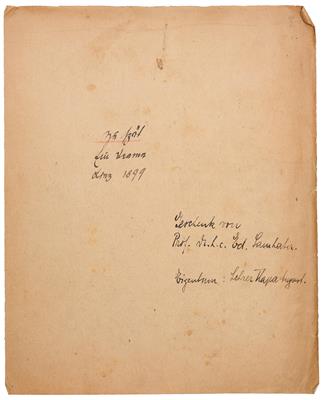 Zu spät
Ein Drama
Linz 1899
Geschenk von
Prof. Dr. h. c. Ed. Samhaber.
Eigentum: Lehrer